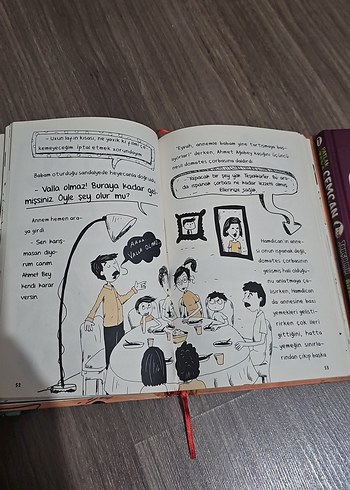 - Uzun layın kısası, ne yazık ki yılımı çı-
kemeyeceğim. İptal etmek zorundayım.
Babam oturduğu sandalyede heyecanla doğruldu.
- Valla olmaz! Buraya kadar gel-
mişsiniz. Öyle şey olur mu?
Annem hemen ara-
ya girdi.
- Sen karış-
masan diyo-
rum canım.
Ahmet Bey
kendi karar
versin.
Aaaa
Valla olmaz
52
"Eyvah, annemle babam yine tartışmaya baş-
lıyorlar!" derken, Ahmet Ağabey kaşığını üçüncü
domates çorbasına daldırdı.
- Yapacak bir şey yok. Teşekkürler. Bu ara-
da ıspanak çorbası ne kadar lezzetli olmuş.
Ellerinize sağlık.
Hamdican'ın anne-
si onun ıspanak değil,
domates çorbasının
yesisinş hali olduğu-
nu anlatmaya ça-
lışırken, Hamdican
da annesine bazı
yemekleri gelişti-
rirken çok ileri
gittiğini, hatta
yemeğin sınırla-
rından çıkıp başka
53
CEMCAN